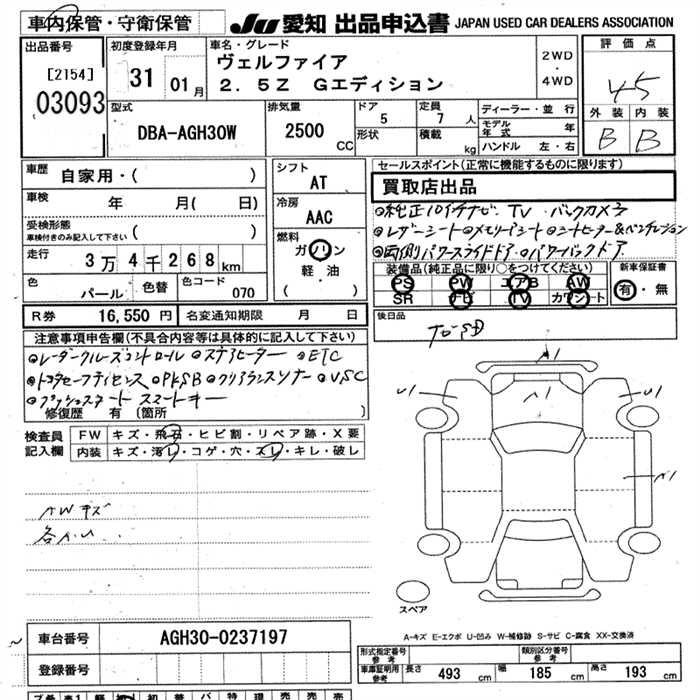 車内保管・守衛保管 JU 愛知 出品申込書 JAPAN USED CAR DEALERS ASSOCIATION
出品番号 初度登録年月 車名・グレード 評価点
[2154] 31 01月 ヴェルファイア 2WD・4WD
03093 2.5Z Gエディション 4.5
型式 排気量 ドア 定員 ディーラー・並行 外装 内装
DBA-AGH30W 2500CC 5 7人 モデル年式 年 B B
形状 積載 kg ハンドル 左・右
車歴 自家用・( ) シフト AT セールスポイント(正常に機能するものに限ります)
買取店出品
車検 年 月( 日) 冷房 AAC
◎純正10インチナビ TV バックカメラ
受検形態 車検付きのみ記入して下さい ( )
◎レザーシート◎メモリーシート◎シートヒーター&ベンチレーション
走行 3万4千268km 燃料 ガソリン 軽・油 ( )
◎両側パワースライドドア・◎パワーバックドア
色 パール 色替 色コード 070
装備品(純正品に限り○をつけてください) 新車保証書
PS PW エアB AW 有・無
SR ナビ TV カワシート
R券 16,550円 名変通知期限 月 日 後日品
注意事項申告欄(不具合内容等は具体的に記入して下さい)
◎レーダークルーズコントロール ◎ステアヒーター ◎ETC
◎トヨタセーフティセンス ◎PKSB ◎クリアランスソナー ◎VSC
◎プッシュスタート スマートキー
修復歴 有(箇所 )
検査員記入欄 FW キズ・飛石・ヒビ割・リペア跡・X要
内装 キズ・汚レ・コゲ・穴・スレ・キレ・破レ
A1
U1 A1 U1
A1
AWキズ
各A.U
スペア
A-キズ E-エクボ U-凹み W-補修跡 S-サビ C-腐食 XX-交換済
車台番号 AGH30-0237197
登録番号
形式指定番号 参考 類別区分番号 参考
車庫証明用 参考 長さ 493cm 幅 185cm 高さ 193cm